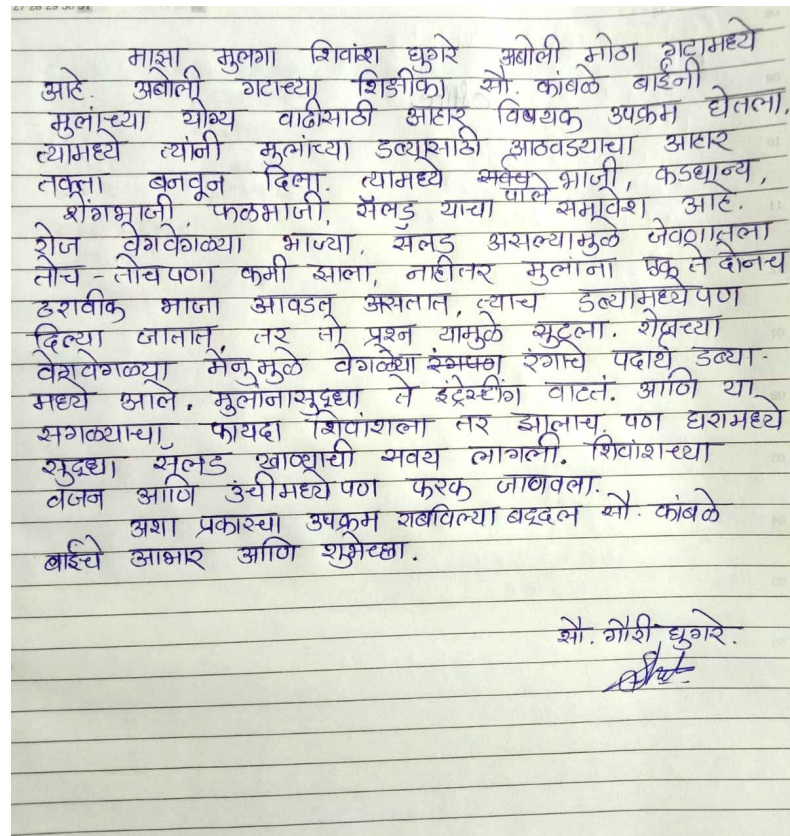 27 28 29 30 31
माझा मुलगा शिवांश घुगरे अबोली मोठा गटामध्ये
आहे. अबोली गटाच्या शिक्षीका सौ. कांबळे बाईंनी
मुलांच्या योग्य वाढीसाठी आहार विषयक उपक्रम घेतला.
त्यामध्ये त्यांनी मुलांच्या डब्यासाठी आठवडयाचा आहार
तक्ता बनवून दिला. त्यामध्ये पाले भाजी, कडधान्य,
शेंगभाजी, फळभाजी, सॅलड याचा समावेश आहे.
रोज वेगवेगळ्या भाज्या, सॅलड असल्यामुळे जेवणातला
तोच - तोचपणा कमी झाला, नाहीतर मुलांना एक ते दोनच
ठरावीक भाजा आवडत असतात, त्याच डब्यामध्येपण
दिल्या जातात, तर तो प्रश्न यामुळे सुटला. रोजच्या
वेगवेगळ्या मेनुमुळे वेगळ्या रंगाचे पदार्थ डब्या-
मध्ये आले. मुलांनासुद्धा ते इंट्रेस्टींग वाटतं. आणि या
सगळ्याचा फायदा शिवांशला तर झालाच पण घरामध्ये
सुद्धा सॅलड खाण्याची सवय लागली. शिवांशच्या
वजन आणि उंचीमध्येपण फरक जाणवला.
अशा प्रकारचा उपक्रम राबविल्याबद्दल सौ. कांबळे
बाईंचे आभार आणि शुभेच्छा.
सौ. गौरी घुगरे.